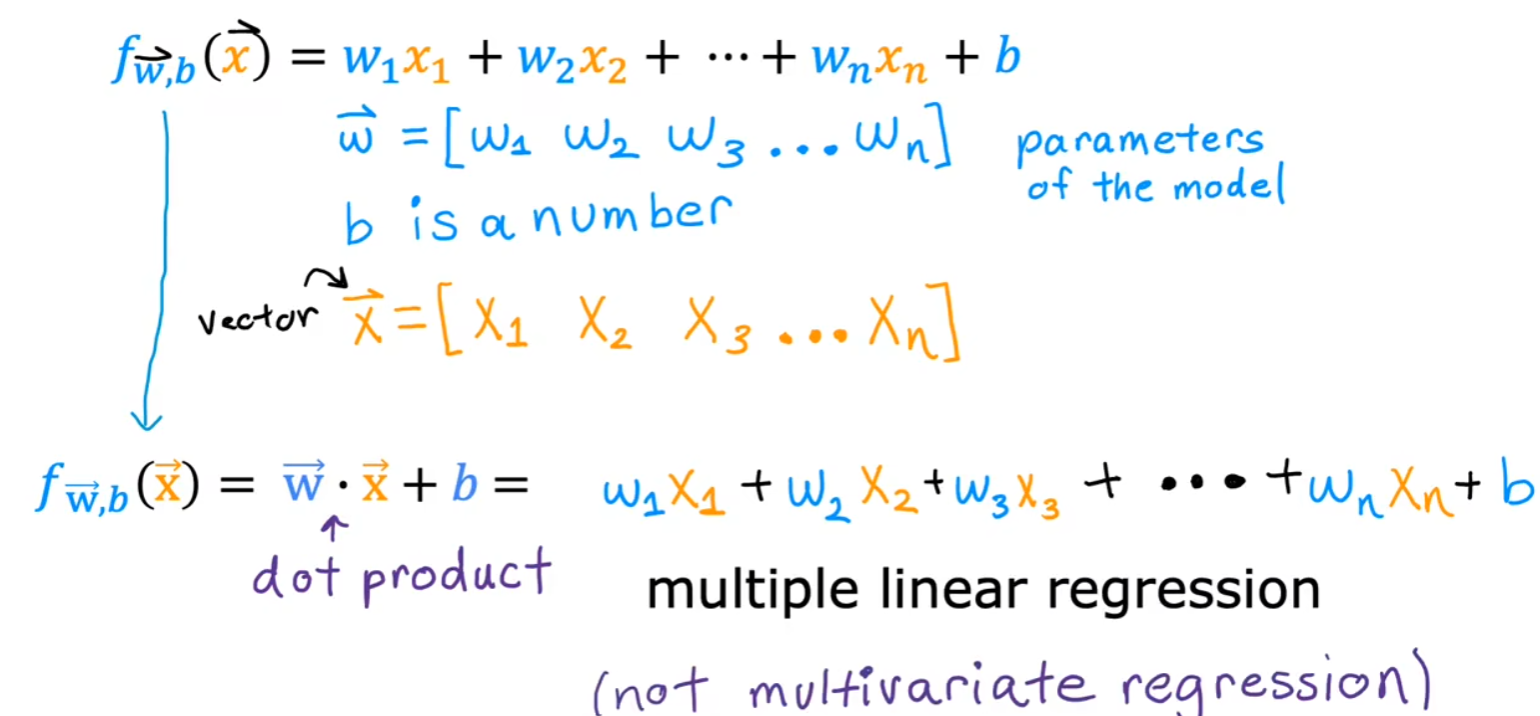 f w⃗,b (x⃗) = w₁x₁ + w₂x₂ + ⋯ + wₙxₙ + b
w⃗ = [w₁ w₂ w₃ ... wₙ] parameters
of the model
b is a number
vector x⃗ = [x₁ x₂ x₃ ... xₙ]
f w⃗,b (x⃗) = w⃗ · x⃗ + b = w₁x₁ + w₂x₂ + w₃x₃ + ... + wₙxₙ + b
dot product
multiple linear regression
(not multivariate regression)